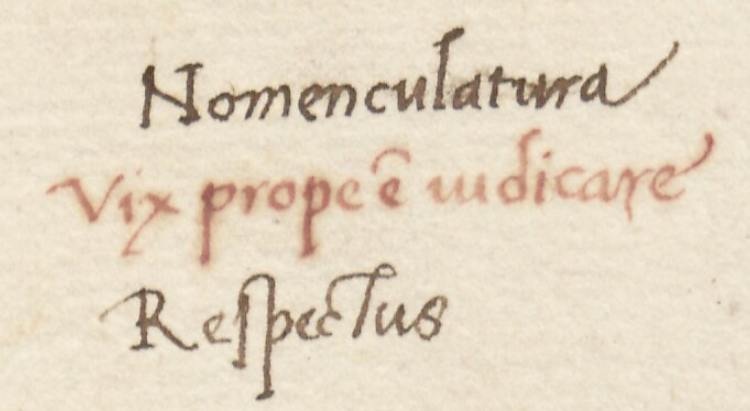 Nomenculatura
Vix prope ē iudicare
Respectus